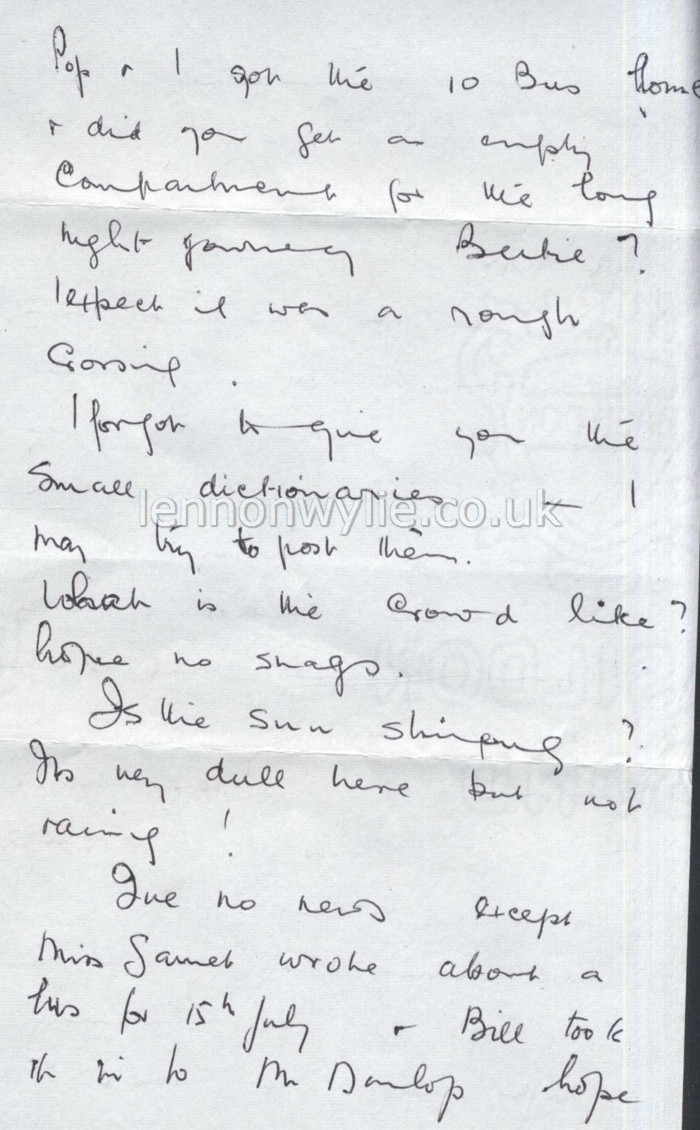 Pop & I got the 10 Bus home
& did you get an empty
Compartment for the long
night journey Bertie?
I expect it was a rough
Crossing.
I forgot to give you the
Small dictionaries — I
lennonwylie.co.uk
may try to post them.
What is the Crowd like?
hope no snags.
Is the Sun shining?
Its very dull here but not
raining!
Ive no news except
Miss wrote about a
bus for 15th July & Bill took
it in to Mr Dunlop hope